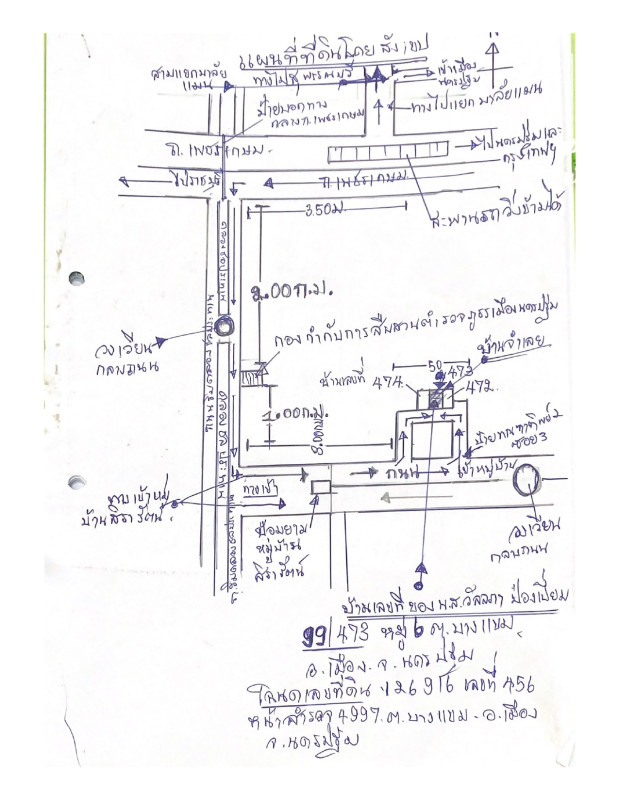 แผนที่ที่ดินโดยสังเขป
N
สามแยกมาลัย
แมน
ทางไปสุพรรณบุรี
เข้าเมือง
นครปฐม
ป้ายบอกทาง
กลางถ.เพชรเกษม
ทางไปแยกมาลัยแมน
ถ.เพชรเกษม
ไปนครปฐมและ
กรุงเทพฯ
ไปราชบุรี
ถ.เพชรเกษม
3.50ม.
สะพานรถวิ่งข้ามได้
คลองชลประทาน
ถนนเลียบคลองชลประทาน
2.00ก.ม.
วงเวียน
กลางถนน
กองกำกับการสืบสวนตำรวจภูธรเมืองนครปฐม
บ้านจำเลย
50
บ้านเลขที่
474
473
472
1.00ก.ม.
8.00ก.ม.
คลองชลประทาน
ป้ายทางเข้าทิพย์2
ซอย3
ถนน
เข้าหมู่บ้าน
ทางเข้าหมู่
บ้านสิรารัตน์
ทางเข้า
ป้อมยาม
หมู่บ้าน
สิรารัตน์
วงเวียน
กลางถนน
บ้านเลขที่ ของ น.ส.วัลลภา ป้องเปี่ยม
99/473 หมู่ 6 ต.บางแขม
อ.เมือง จ.นครปฐม
โฉนดเลขที่ดิน 126916 เลขที่ 456
หน้าสำรวจ 4997 ต.บางแขม - อ.เมือง
จ.นครปฐม